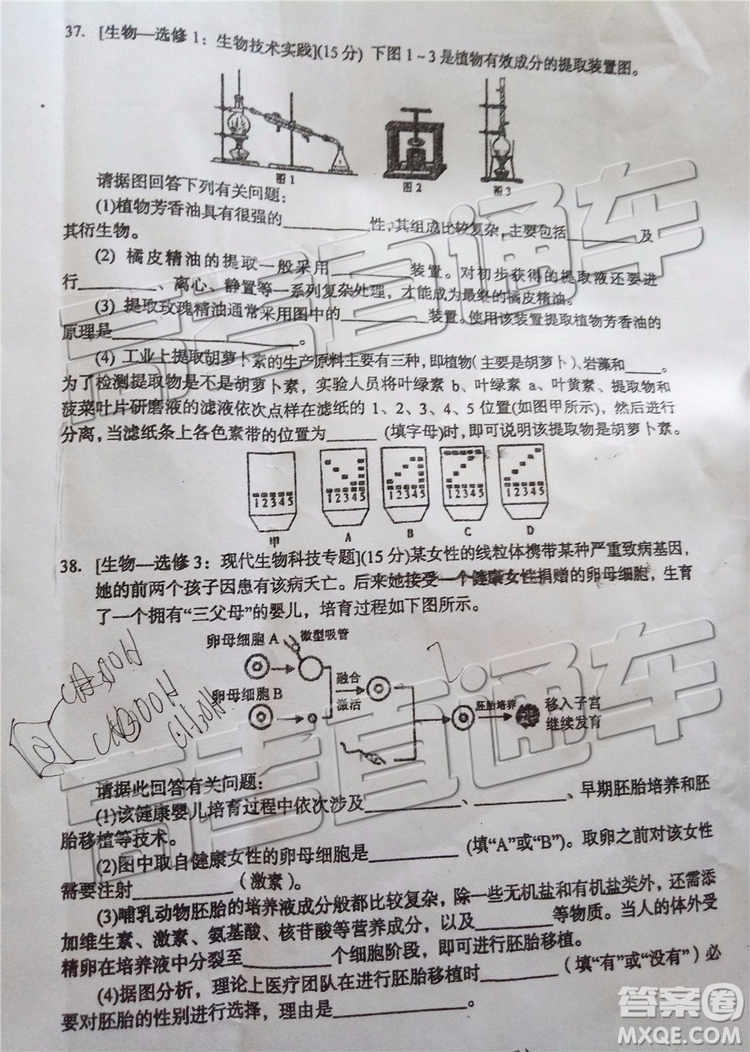 37. [生物—选修1：生物技术实践](15分) 下图1~3是植物有效成分的提取装置图。
图1 图2 图3
请据图回答下列有关问题：
(1)植物芳香油具有很强的________性，其组成比较复杂，主要包括________及
其衍生物。
(2) 橘皮精油的提取一般采用________装置。对初步获得的提取液还要进
行________、离心、静置等一系列复杂处理，才能成为最终的橘皮精油。
(3) 提取玫瑰精油通常采用图中的________装置。使用该装置提取植物芳香油的
原理是________
(4) 工业上提取胡萝卜素的生产原料主要有三种，即植物（主要是胡萝卜）、岩藻和____。
为了检测提取物是不是胡萝卜素，实验人员将叶绿素 b、叶绿素 a、叶黄素、提取物和
菠菜叶片研磨液的滤液依次点样在滤纸的 1、2、3、4、5 位置(如图甲所示)，然后进行
分离，当滤纸条上各色素带的位置为________ (填字母)时，即可说明该提取物是胡萝卜素。
12345 12345 12345 12345 12345
甲 A B C D
38. [生物—选修3：现代生物科技专题](15分)某女性的线粒体携带某种严重致病基因，
她的前两个孩子因患有该病夭亡。后来她接受一个健康女性捐赠的卵母细胞，生育
了一个拥有“三父母”的婴儿，培育过程如下图所示。
卵母细胞 A 微型吸管
融合
激活
卵母细胞 B
胚胎培养
移入子宫
继续发育
请据此回答有关问题：
(1)该健康婴儿培育过程中依次涉及________、________、早期胚胎培养和胚
胎移植等技术。
(2)图中取自健康女性的卵母细胞是________ (填“A”或“B”)。取卵之前对该女性
需要注射________（激素）。
(3)哺乳动物胚胎的培养液成分一般都比较复杂，除一些无机盐和有机盐类外，还需添
加维生素、激素、氨基酸、核苷酸等营养成分，以及________等物质。当人的体外受
精卵在培养液中分裂至________个细胞阶段，即可进行胚胎移植。
(4)据图分析，理论上医疗团队在进行胚胎移植时________（填“有”或“没有”）必
要对胚胎的性别进行选择，理由是________。
高考直通车
高考直通车
答案圈
MXQE.COM